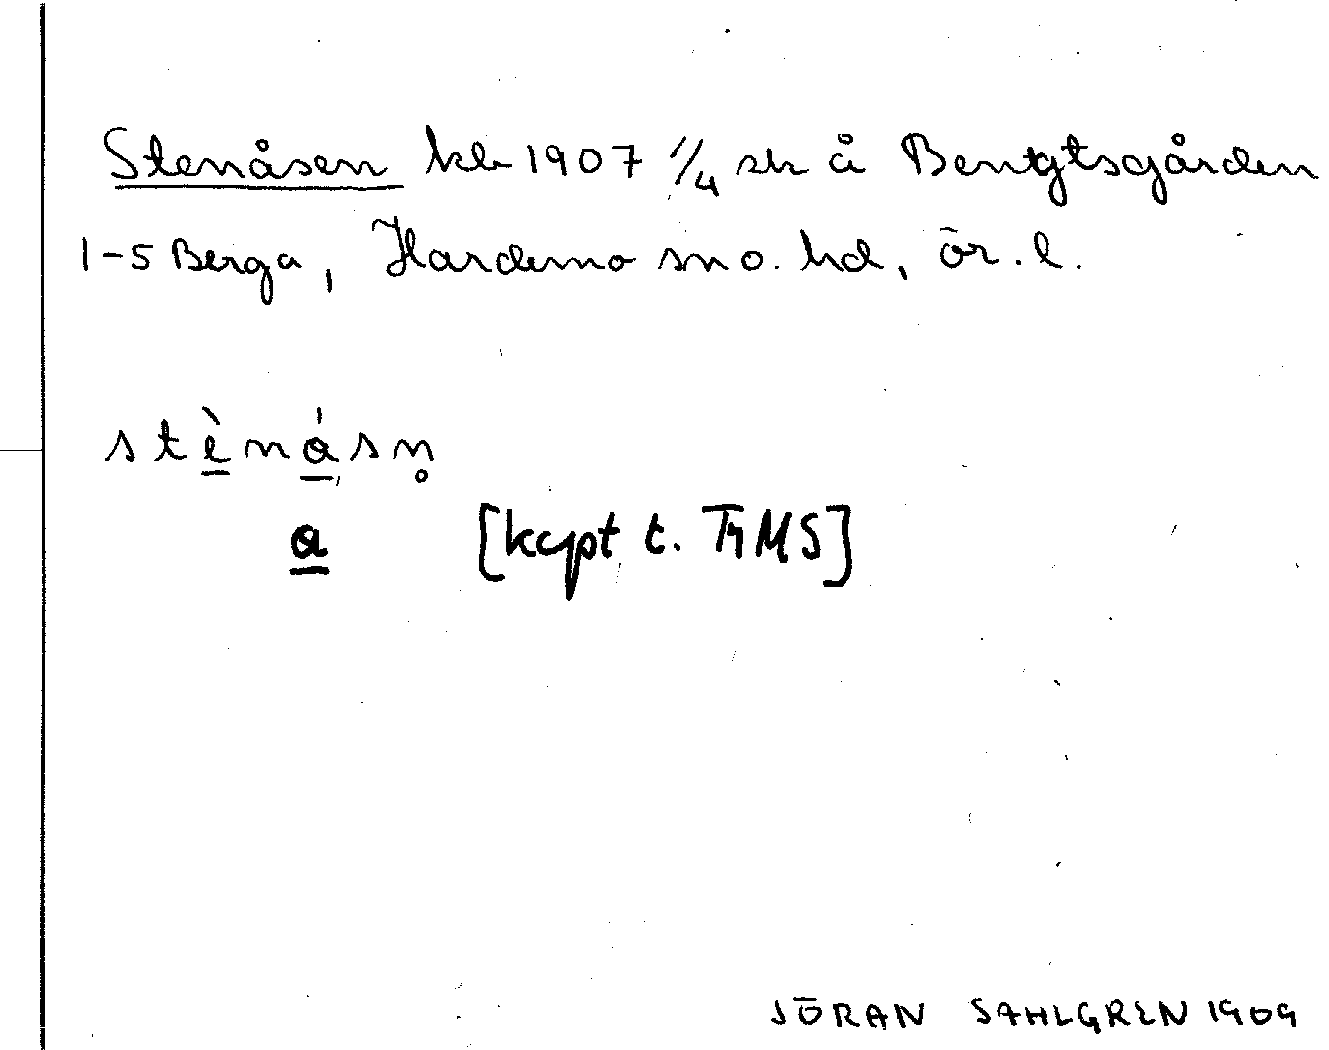 Stenåsen kb 1907 1/4 sk å Bengtsgården
1-5 Berga, Hardemo sn o. hd, ör. l.
stènásn̥
a [kypt t. TrMS]
JÖRAN SAHLGREN 1909